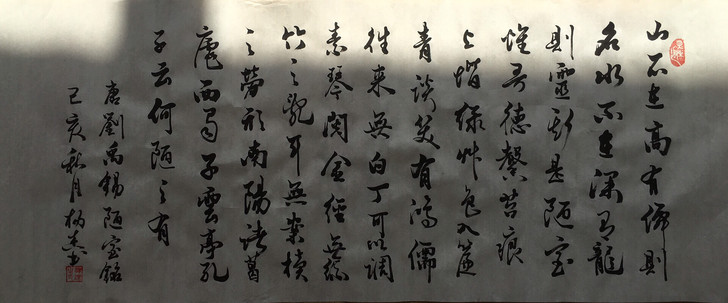 山不在高有僊則
名水不在深有龍
則靈斯是陋室
惟吾德馨苔痕
上堦綠艸色入簾
青談笑有鴻儒
往来無白丁可以調
素琴閱金經無絲
竹之亂耳無案牘
之勞形南陽諸葛
廬西蜀子雲亭孔
子云何陋之有
唐劉禹錫陋室銘
己亥秋月書